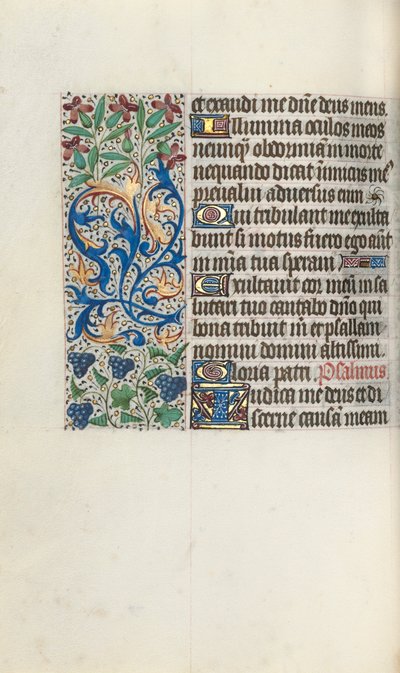 et exaudi me dñe deus meus.
Illumina oculos meos
ne unq̃ obdormiam in morte
nequando dicat inimicus meꝰ
preualui aduersus eum
Qui tribulant me exulta
bunt si motus fuero ego aũt
in mĩa tua speraui
Exultauit cor meũ in sa
lutari tuo cantabo dño qui
bona tribuit m̃ et psallam
nomini domini altissimi.
Gloria patri Psalmus
Iudica me deus et di
scerne causam meam